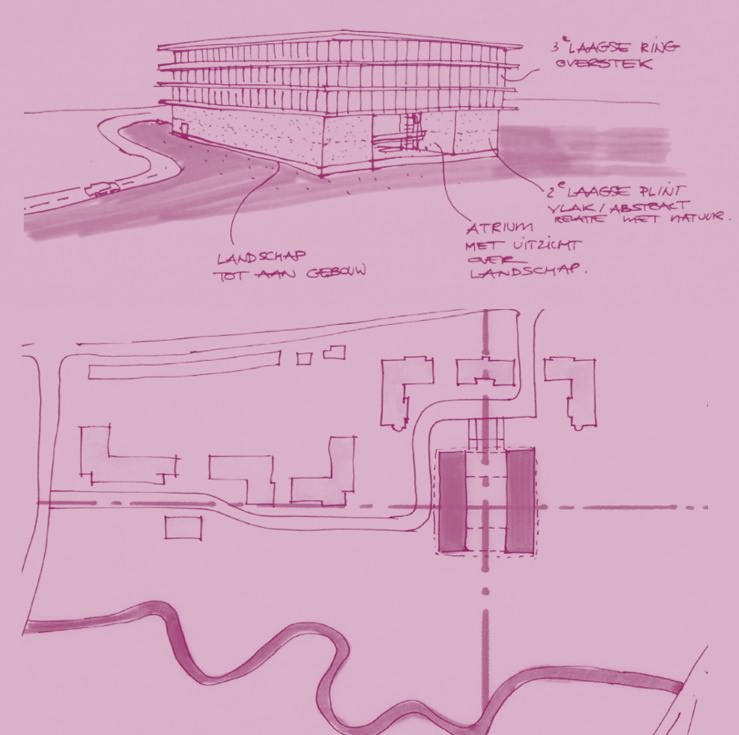 3ᵉ LAAGSE RING
OVERSTEK
2ᵉ LAAGSE PLINT
VLAK / ABSTRACT
RELATIE MET NATUUR.
ATRIUM
MET UITZICHT
OVER
LANDSCHAP.
LANDSCHAP
TOT AAN GEBOUW